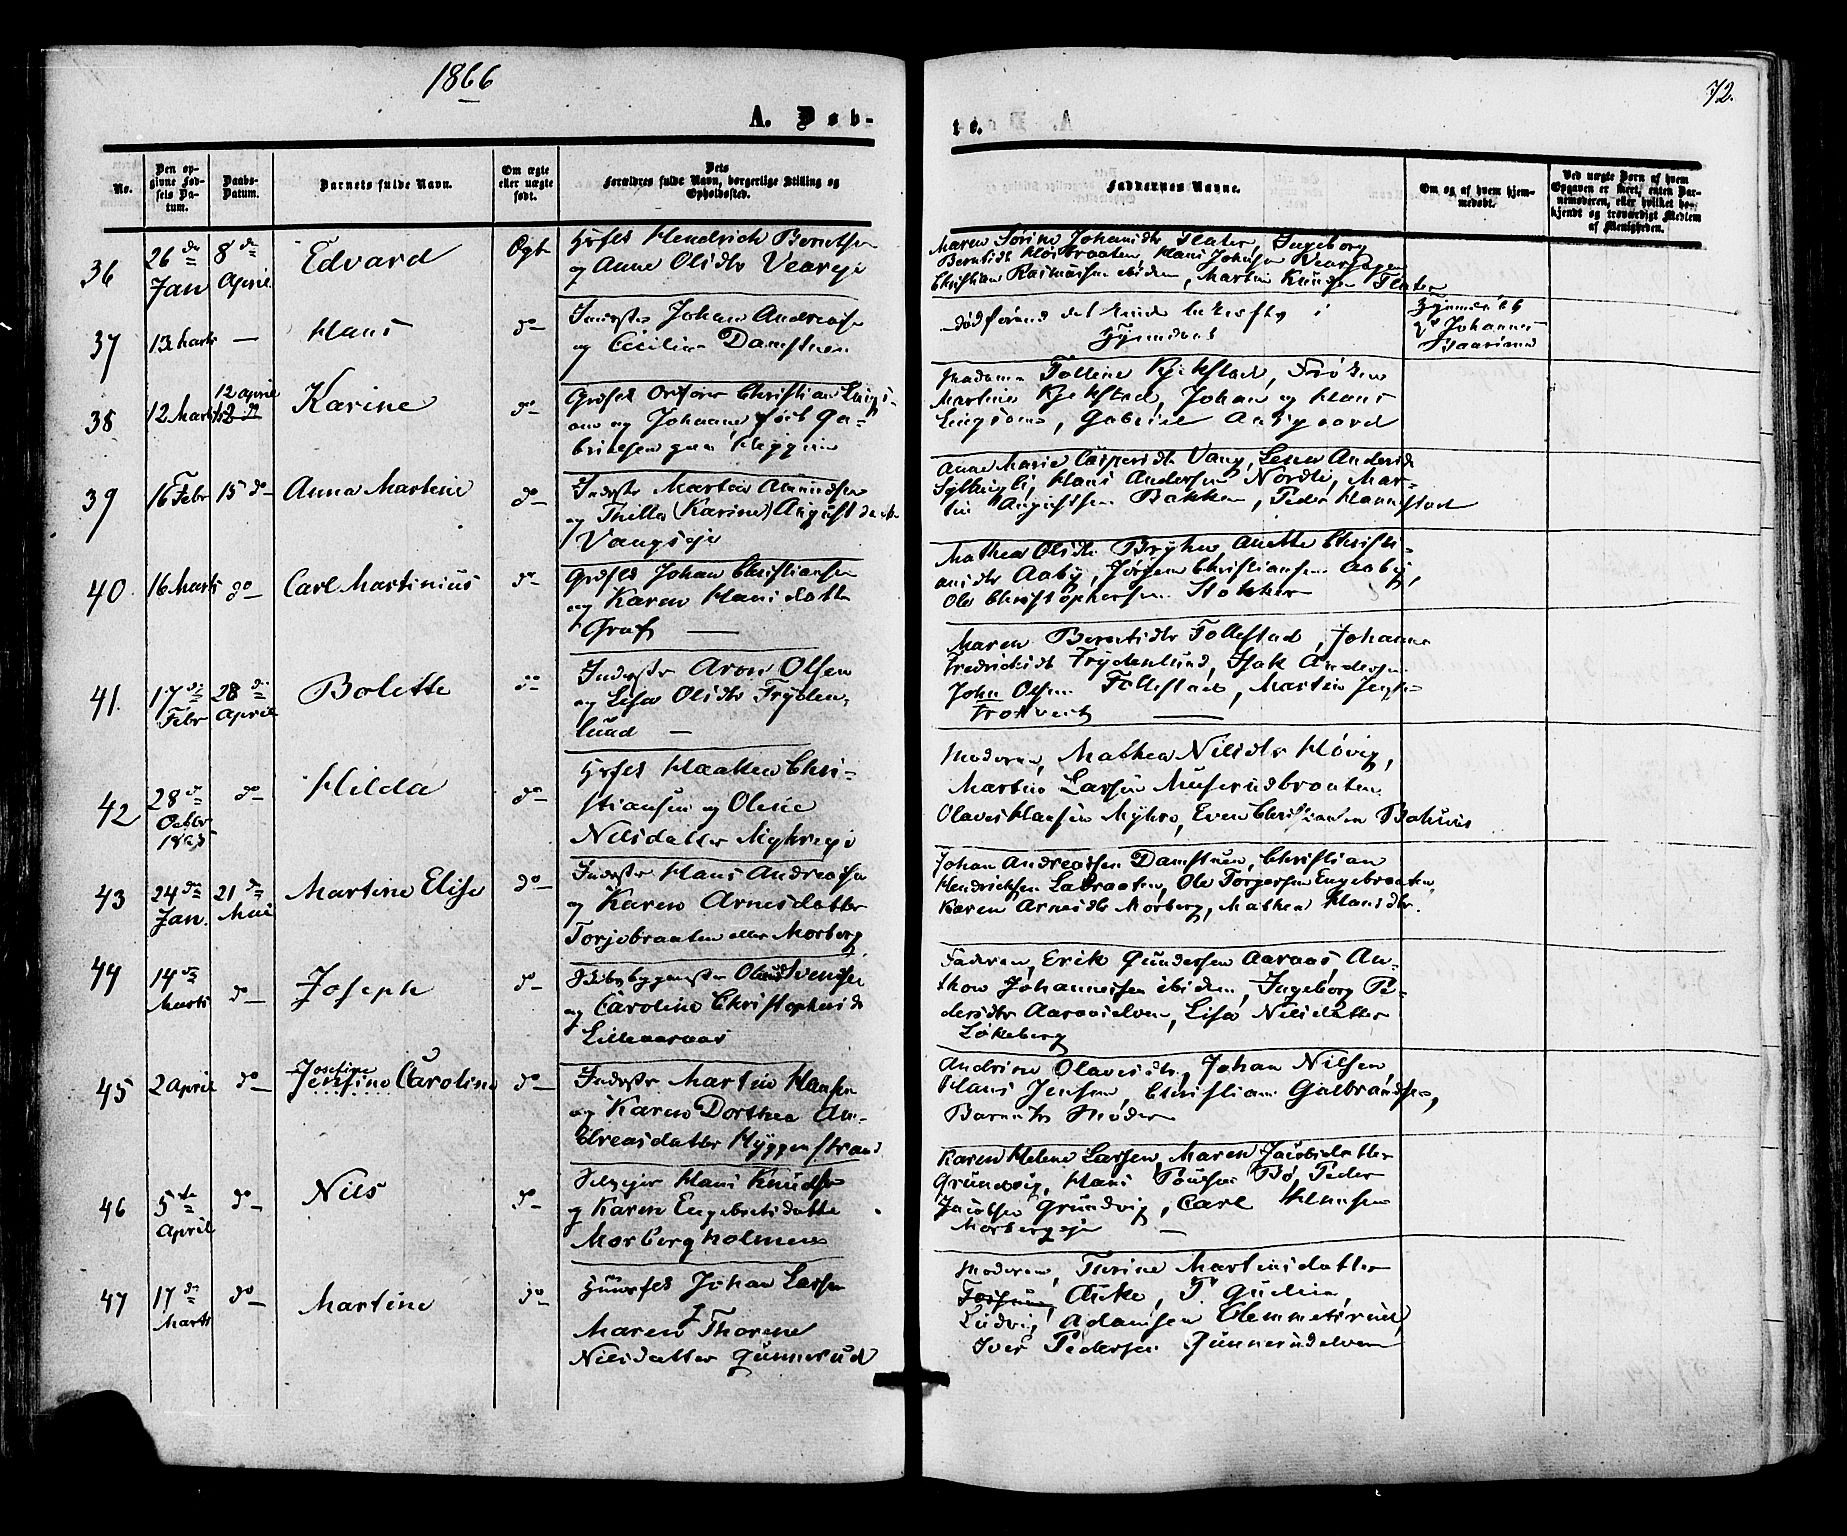 1866
72.
A. Døb-
te.
No.
Den op-
givne Fød-
sels Da-
tum.
Daabs-
Datum.
Barnets fulde Navn.
Om ægte
eller uægte
født.
Dets
Forældres fulde Navn, borgerlige Stilling og
Opholdssted.
Faddernes Navne.
Om og af hvem hjem-
medøbt.
Ved uægte Børn af hvem
Opgaven er skeet, enten Bar-
nemoderen, eller hvilket be-
kjendt og troværdigt Medlem
af Menigheden.
36
26 de
Jan
8 de
April
Edvard
Ægt
Hendrich Berntsen
og Anne Olsdtr
Maren Johansdtr Flater, Ingeborg
Berntsdt
Christian Rasmussen ibidem, Martin Knudsen Flater
37
13 Marts
—
Hans
do
Inderster Johan Andreasen
og Cecilia Damstuen
Johannes
38
12 Marts
12 April
Karine
do
Christian
og Johanne
Martine Kjekstad, Johan og Hans
Gabriel
39
16 Febr
15 do
Anna Martine
do
Inderster Martin Amundsen
og Thilla (Karine) August datt
Vangseje
Anne Marie Caspersdtr Vang, Lena Andersdt
Hans Andersen Nordli, Mar-
tin Augustsen Bakken, Peder Hannestad
40.
16 Marts
do
Carl Martinius
do
Johan Christiansen
og Karen Hansdatter
Graf —
Mathea Olsdtr Bryhn, Anette Christi-
ansdtr Aaby, Jørgen Christiansen Aaby,
Ole Christophersen Stokker
41.
17 de
Febr
28 de
April
Bolette
do
Inderster Aron Olsen
og Lisa Olsdtr Fryden-
lund —
Maren Berntsdtr Follestad, Johanne
Fredriksdt Frydenlund, Isak Andersen
John Olsen Follestad, Martin
42
28 de
Octbr
1865
do
Hilda
do
Haaken Chri-
stiansen og Oline
Nilsdatter Myhreje
Moderen, Mathea Nilsdtr Høvig,
Martin Larsen Muserudbraaten
Olaves Hansen Myhre, Even Christiansen
43
24 de
Jan.
21 de
Mai
Martine Elise
do
Inderster Hans Andreasen
og Karen Arnesdatter
Torjebraaten eller Morberg
Johan Andreassen Damstuen, Christian
Hendriksen Labraaten, Ole Torgersen Engebraaten,
Karen Arnesdtr Morberg, Mathea Hansdtr.
44
14 de
Marts
do
Joseph
do
Skibsbygmester Svendsen
og Caroline Christophersdt
Lilleaaraas
Faderen, Erik Gundersen Aaraas, An-
thon Johannessen ibidem, Ingeborg Pe-
dersdtr Aaraaselven, Lisa Nilsdatter
Løkeberg
45
2 April
do
Josefine
Jensine Caroline
do
Inderster Martin Hansen
og Karen Dorthea An-
dreasdatter Hyggenstrand
Andrine Olavesdtr, Johan Nilsen,
Hans Jensen, Christian Gulbrandsen,
Barnets Moder
46
5 te
April
do
Nils
do
Selvejer Hans Knudsen
og Karen Engebretsdatte
Morbergholmen
Karen Helene Larsen, Maren Jacobsdatter
Grundvig, Hans Bø, Peder
Jacobsen Grundvig, Carl Hansen
Morbergeje —
47
17 de
Marts
do
Martine
do
Johan Larsen
Maren Thorene
Nilsdatter Gunnerud
Moderen, Thrine Martinsdatter
Ludvig Adamsen Clemmetsrud,
Iver Pedersen Gunnerudelven